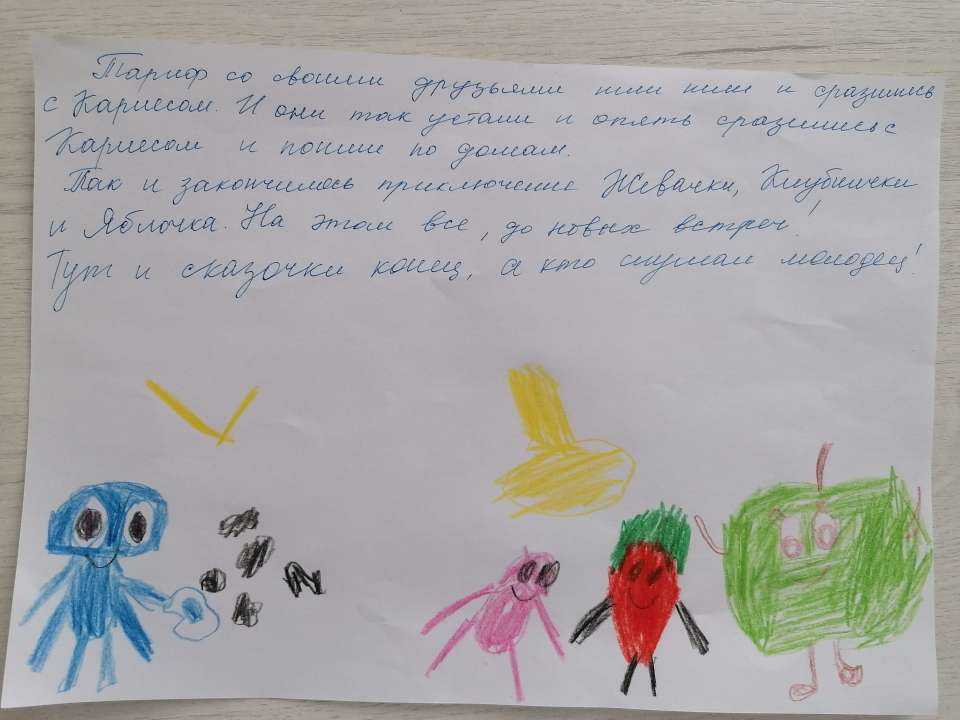 Тариф со своими друзьями шли шли и сразились
с Кариесом. И они так устали и опять сразились с
Кариесом и пошли по домам.
Так и закончилось приключение Жевачки, Клубнички
и Яблочка. На этом все, до новых встреч!
Тут и сказочки конец, а кто слушал молодец!